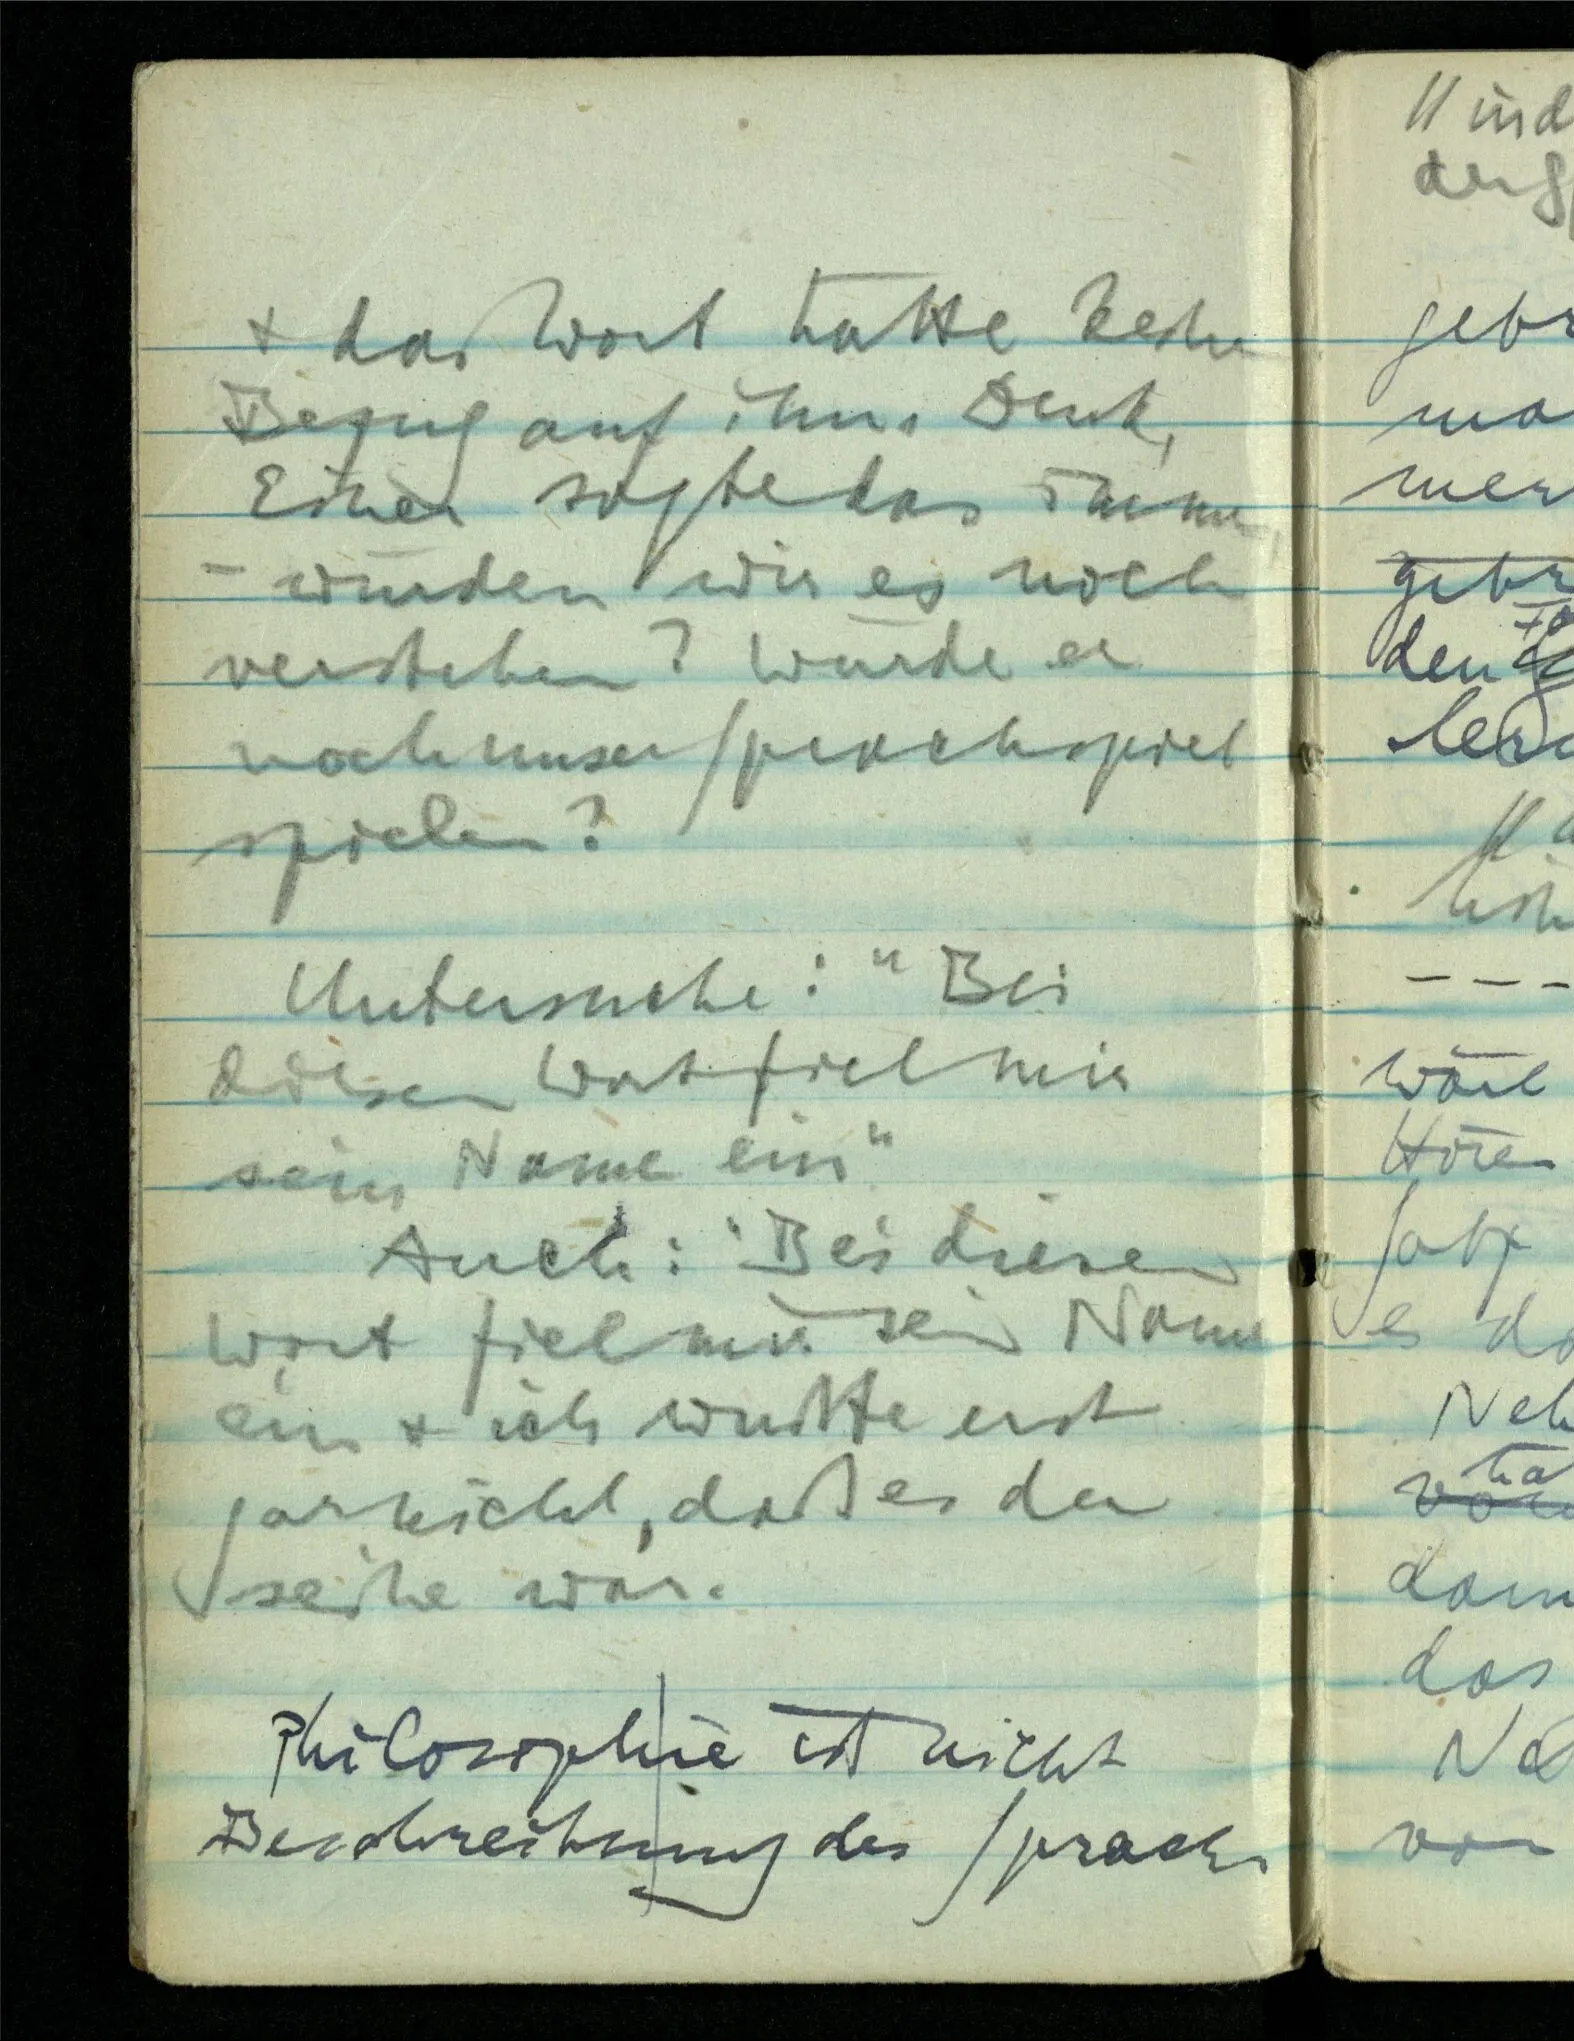 + das Wort hatte keinen
Bezug auf ihn. Denk,
Einer sagte das immer
– würden wir es noch
verstehen? Würde er
noch unser Sprachspiel
spielen?
Untersuche: "Bei
diesem Wort fiel mir
sein Name ein"
Auch: "Bei diesem
Wort fiel mir sein Name
ein + ich wußte erst
garnicht, daß es der
seine war.
Philosophie ist nicht
Beschreibung des Sprach-
gebr
den
wäre
Hören
Satz
es
das
von